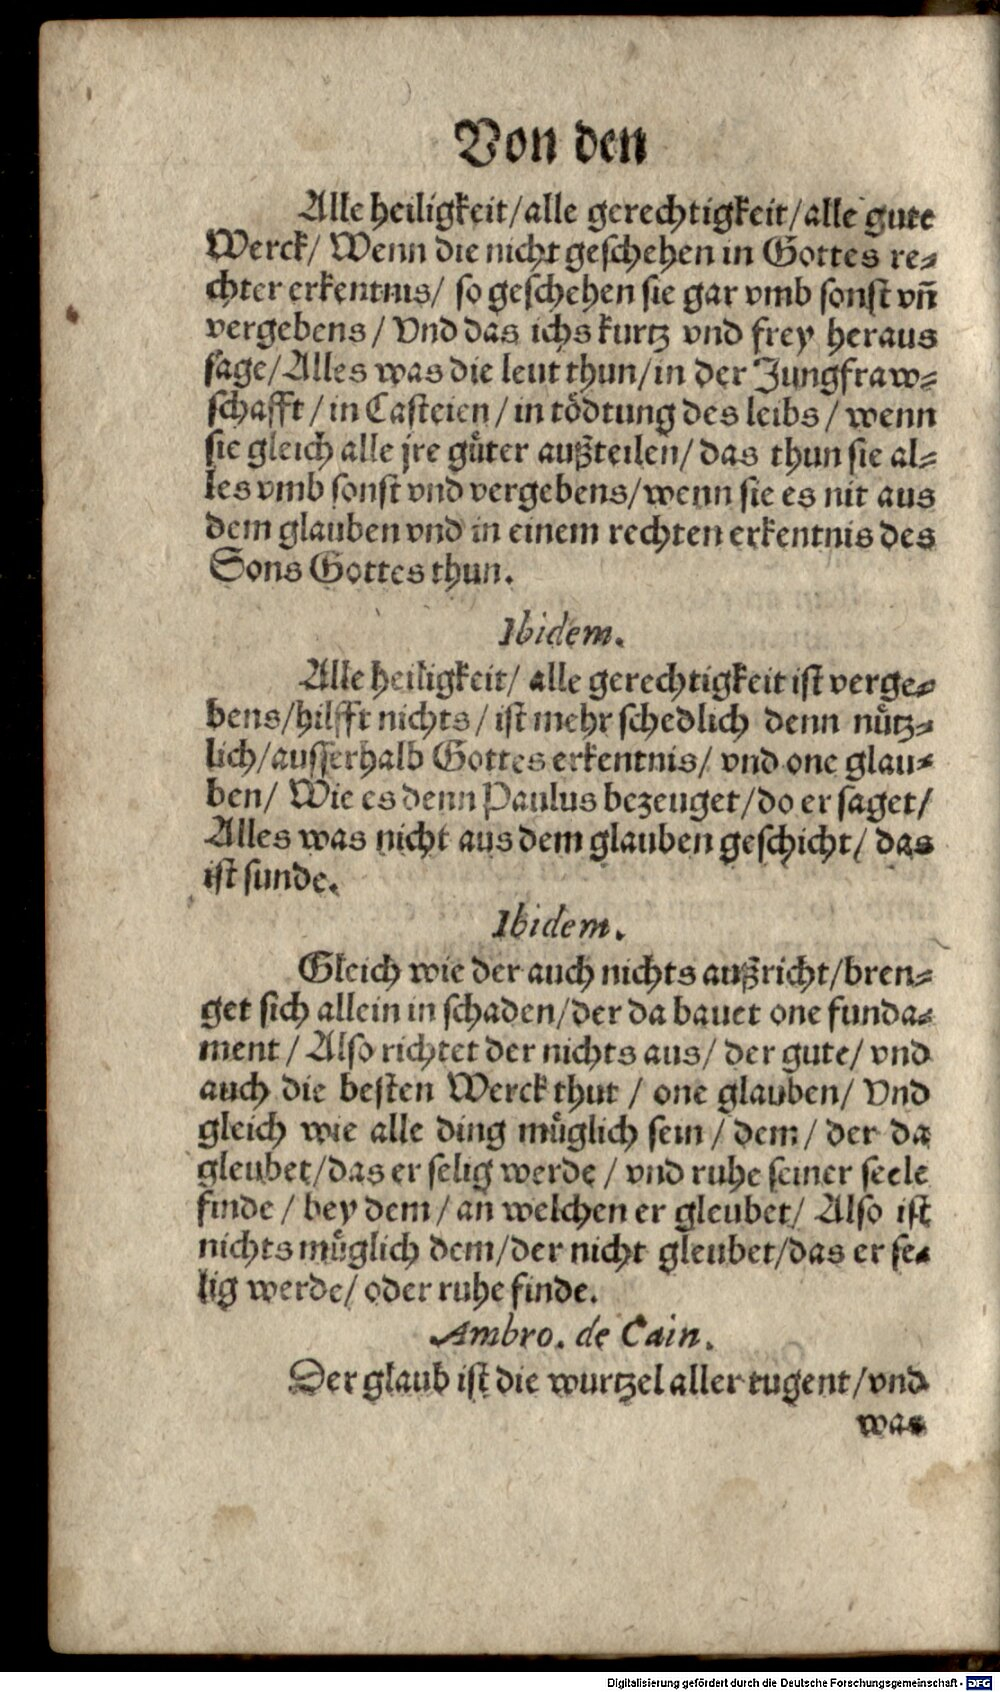 Von den
Alle heiligkeit/alle gerechtigkeit/alle gute
Werck/ Wenn die nicht geschehen in Gottes re⸗
chter erkentnis/ so geschehen sie gar vmb sonst vñ
vergebens/ Vnd das ichs kurtz vnd frey heraus
sage/Alles was die leut thun/in der Jungfraw⸗
schafft/in Casteien/in tödtung des leibs/ wenn
sie gleich alle jre guͤter außteilen/das thun sie al⸗
les vmb sonst vnd vergebens/wenn sie es nit aus
dem glauben vnd in einem rechten erkentnis des
Sons Gottes thun.
Ibidem.
Alle heiligkeit/ alle gerechtigkeit ist verge⸗
bens/hilfft nichts/ ist mehr schedlich denn nuͤtz⸗
lich/ausserhalb Gottes erkentnis/ vnd one glau⸗
ben/ Wie es denn Paulus bezeuget/do er saget/
Alles was nicht aus dem glauben geschicht/ das
ist sunde.
Ibidem.
Gleich wie der auch nichts außricht/bren⸗
get sich allein in schaden/der da bauet one funda⸗
ment/ Also richtet der nichts aus/ der gute/ vnd
auch die besten Werck thut/ one glauben/ Vnd
gleich wie alle ding muͤglich sein/ dem/ der da
gleubet/das er selig werde/ vnd ruhe seiner seele
finde/ bey dem/ an welchen er gleubet/ Also ist
nichts muͤglich dem/der nicht gleubet/das er se⸗
lig werde/ oder ruhe finde.
Ambro. de Cain.
Der glaub ist die wurtzel aller tugent/vnd
was
Digitalisierung gefördert durch die Deutsche Forschungsgemeinschaft - DFG